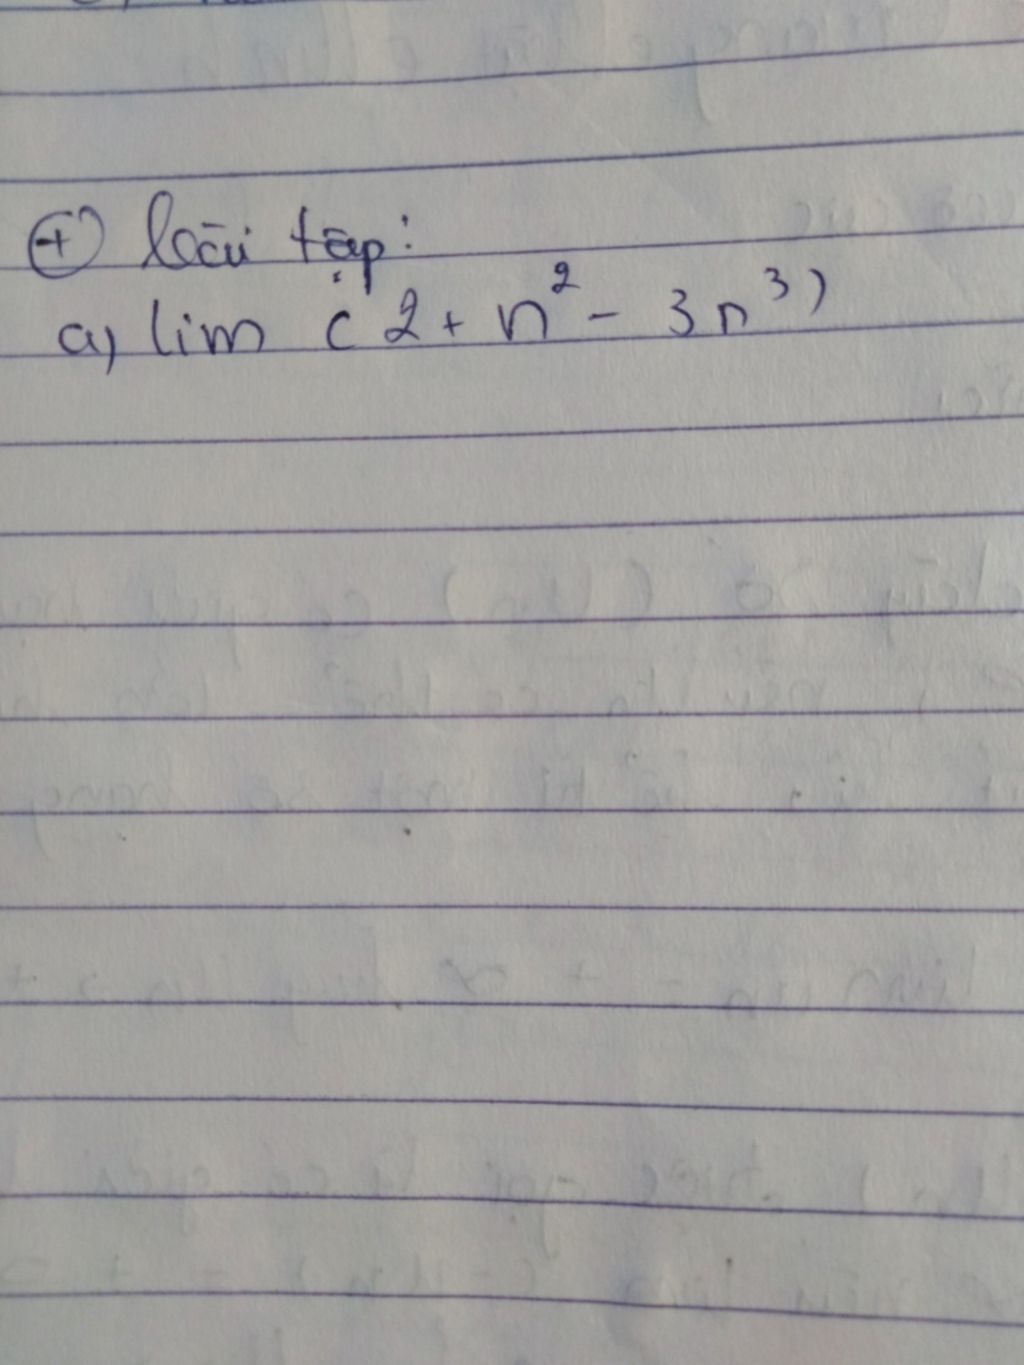 ⊕ bài tập:
a) lim (2 + n² - 3n³)